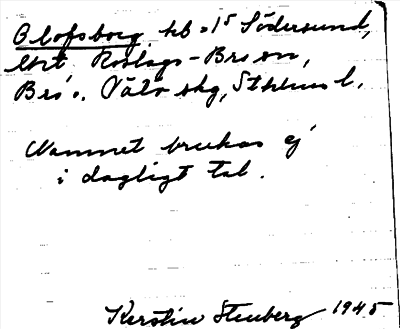 Olofsborg hb = 1⁵ Södersund,
Roslags-Bro sn,
Bro o. Vätö skg, Sthlms l.
Namnet brukas ej
i dagligt tal.
Kerstin Stenberg 1945